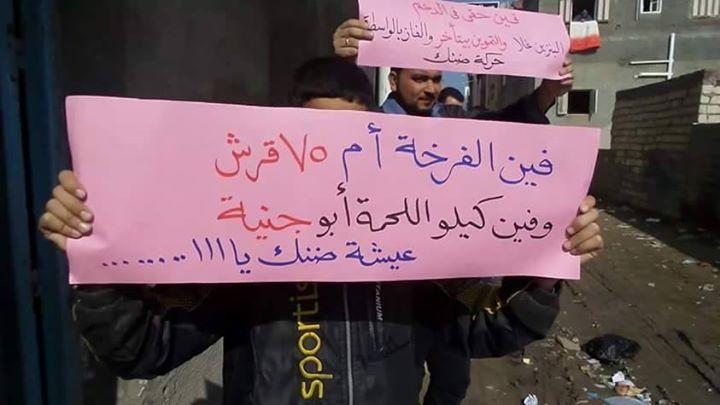 فين حقى فى الدعم
البنزين غلا والتموين بيتأخر والغاز بالواسطة
حركة ضنك
فين الفرخة أم ٧٥ قرش
وفين كيلو اللحمة أبو جنية
عيشة ضنك يا ااا........
sportis
TITANIUM